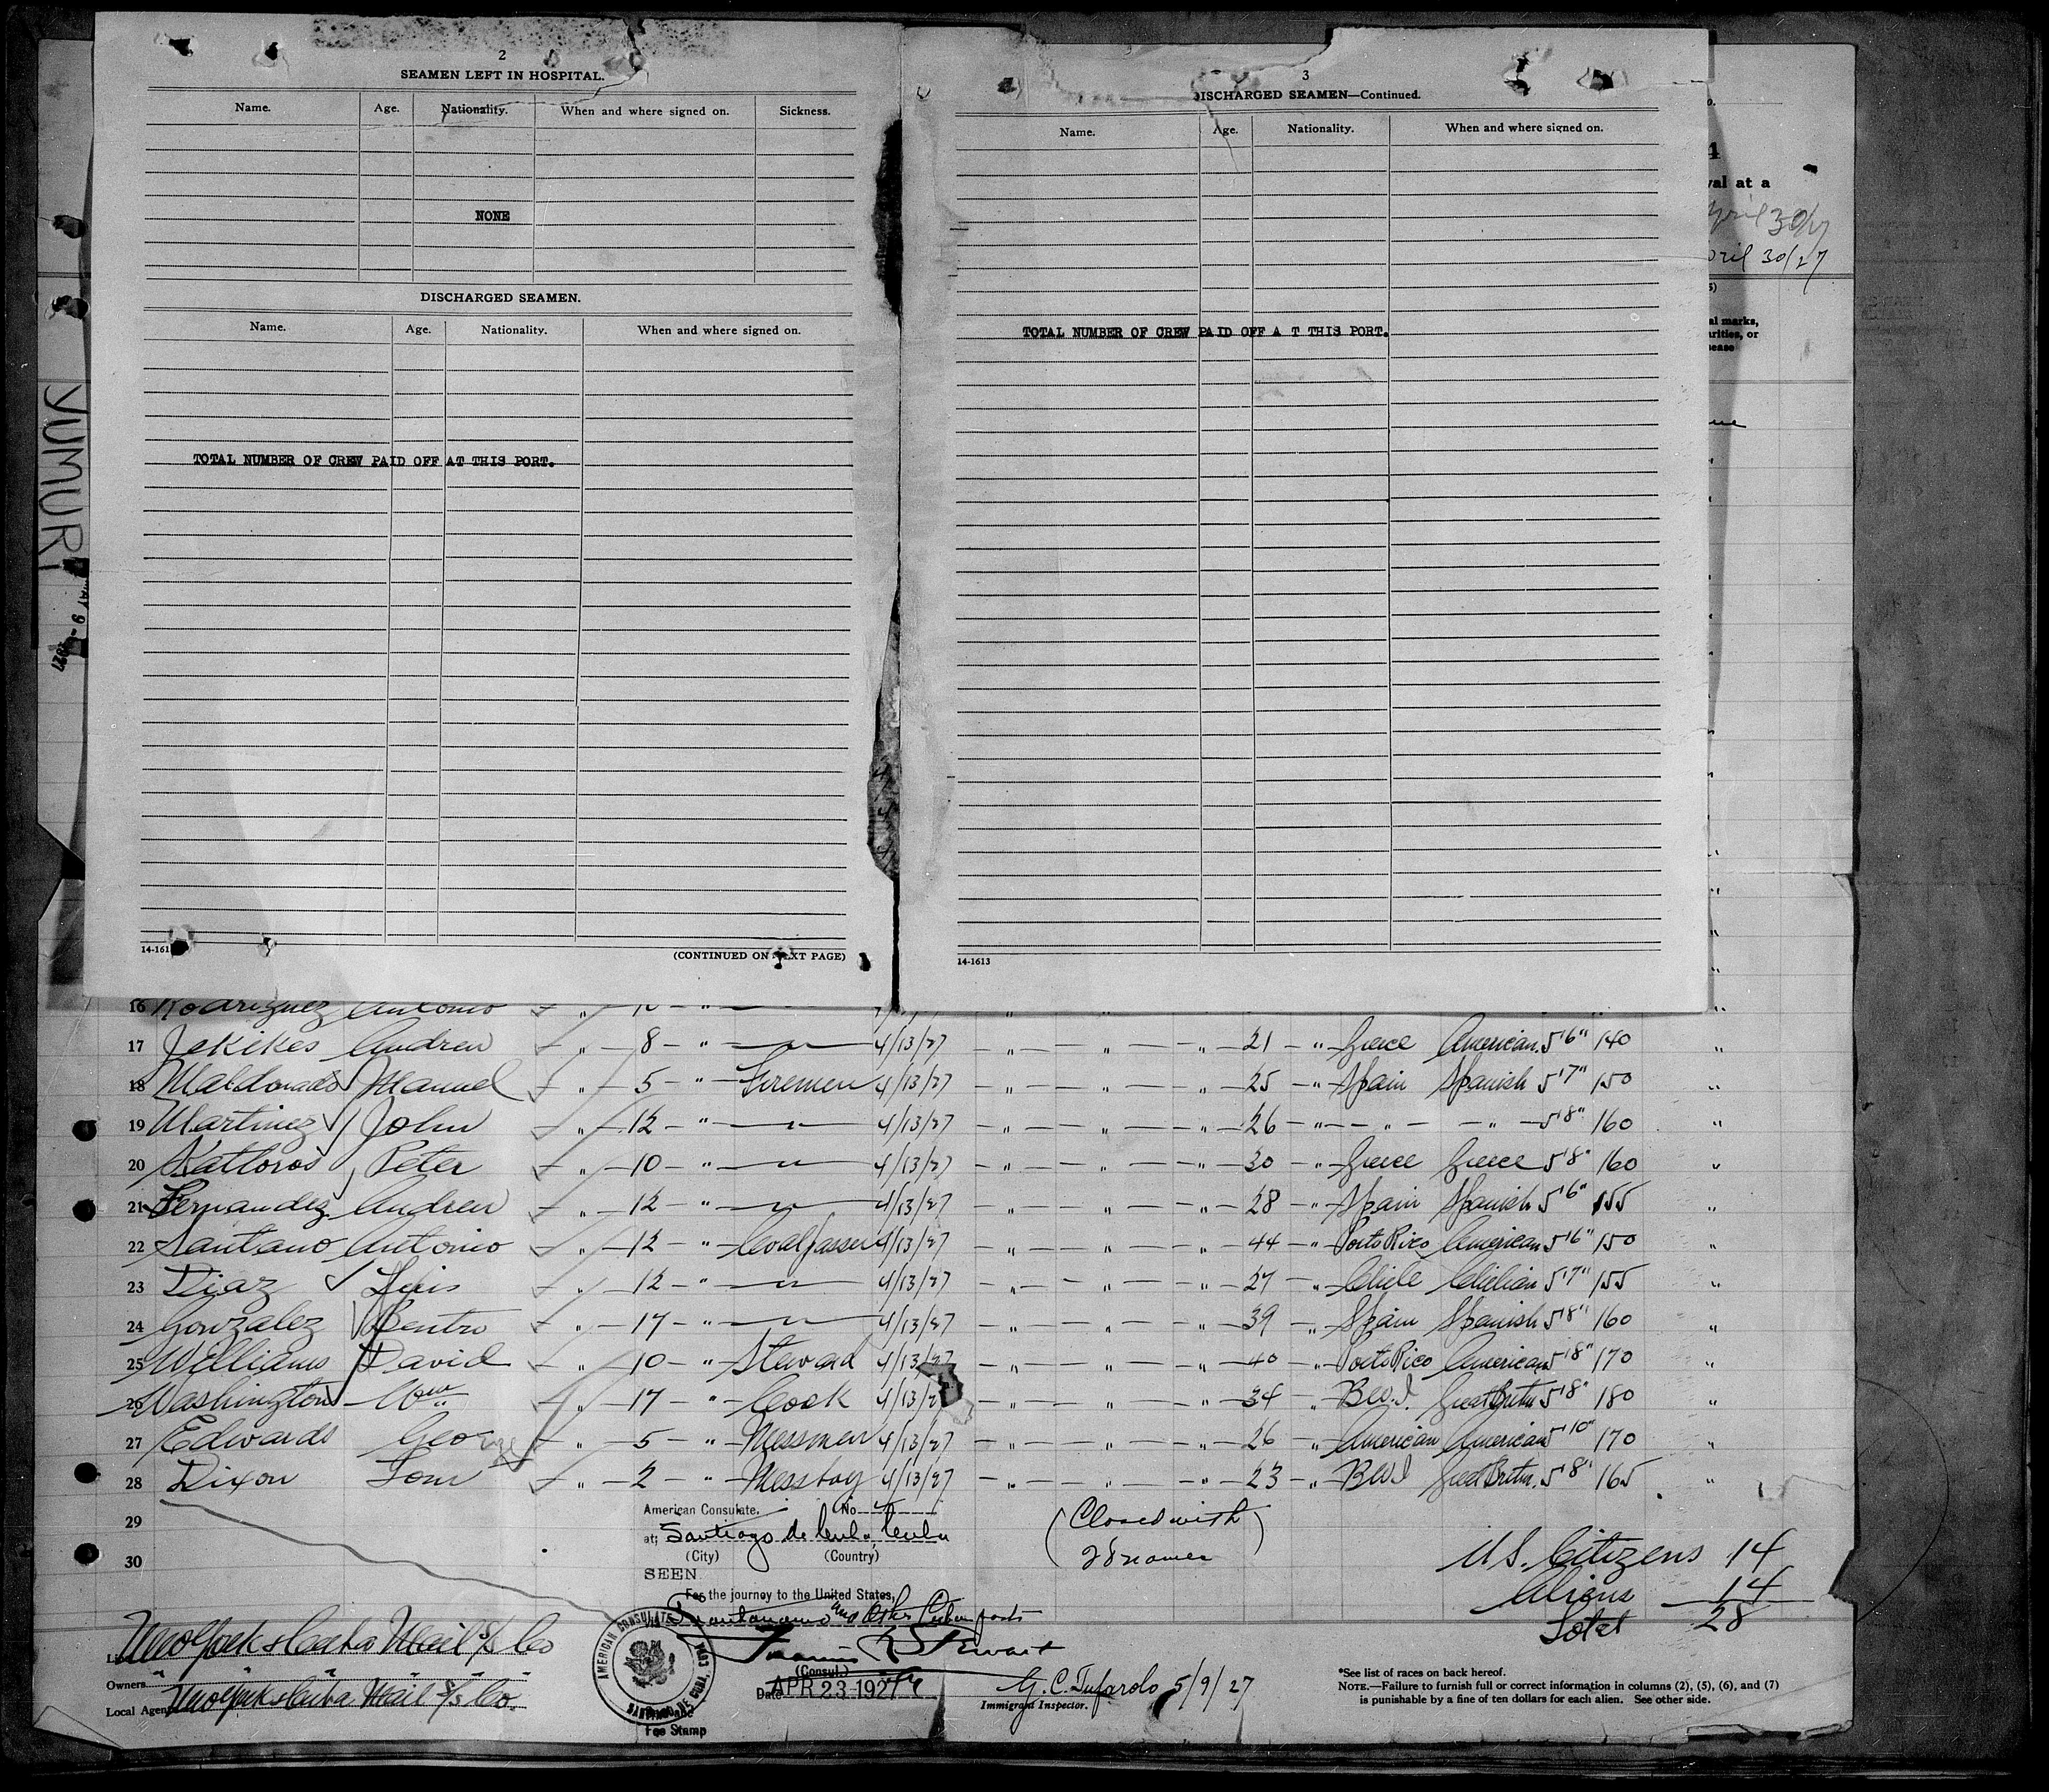 2
SEAMEN LEFT IN HOSPITAL.
Name. Age. Nationality. When and where signed on. Sickness.
NONE
DISCHARGED SEAMEN.
Name. Age. Nationality. When and where signed on.
TOTAL NUMBER OF CREW PAID OFF AT THIS PORT.
14-161
(CONTINUED ON NEXT PAGE)
3
DISCHARGED SEAMEN—Continued.
Name. Age. Nationality. When and where signed on.
TOTAL NUMBER OF CREW PAID OFF A T THIS PORT.
14-1613
val at a
April 30/27
pril 30/27
al marks,
arities, or
sease
YUMURI
MAY 9 - 1927
16 Rodriguez Antonio
17 Jekikes Andrew " 8 " " 4/13/27 " " " 21 " Greece American 5'6" 140 "
18 Maldonado Manuel " 5 " Firemen 4/13/27 " " " 25 " Spain Spanish 5'7" 150 "
19 Martinez John " 12 " " 4/13/27 " " " 26 " " " 5'8" 160 "
20 Kattoros Peter " 10 " " 4/13/27 " " " 30 " Greece Greece 5'8" 160 "
21 Fernandez Andrew " 12 " " 4/13/27 " " " 28 " Spain Spanish 5'6" 155 "
22 Santano Antonio " 12 " Coalpasser 4/13/27 " " " 44 " Porto Rico American 5'6" 150 "
23 Diaz Luis " 12 " " 4/13/27 " " " 27 " Chile Chilian 5'7" 155 "
24 Gonzalez Bentro " 17 " " 4/13/27 " " " 39 " Spain Spanish 5'8" 160 "
25 Williams David " 10 " Steward 4/13/27 " " " 40 " Porto Rico American 5'8" 170 "
26 Washington Wm " 17 " Cook 4/13/2 " " " 34 " B.W.I. Great Britn 5'8" 180 "
27 Edwards George " 5 " Messmen 4/13/27 " " " 26 " American American 5'10" 170 "
28 Dixon Tom " 2 " Messboy 4/13/27 " " " 23 " B.W.I Great Britn. 5'8" 165 "
29
30
American Consulate. No
at; Santiago de Cuba, Cuba
(City) (Country)
SEEN
For the journey to the United States,
Guantanamo and other Cuban ports
(Consul.)
Date APR 23 1927
AMERICAN CONSULATE
SANTIAGO DE CUBA, CUBA
Fee Stamp
(Closed with
28 names)
U.S. Citizens 14
Aliens 14
Total 28
New York & Cuba Mail S/S Co
Owners
Local Agent New York & Cuba Mail S/S Co.
G. C. Tufarolo 5/9/27
Immigrant Inspector.
*See list of races on back hereof.
NOTE.—Failure to furnish full or correct information in columns (2), (5), (6), and (7)
is punishable by a fine of ten dollars for each alien. See other side.